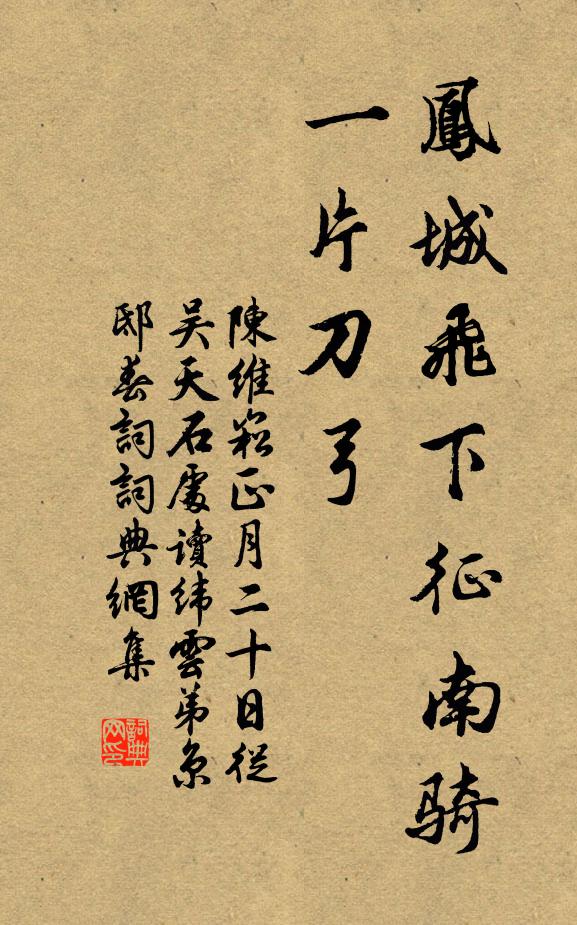 鳳城飛下征南騎
一片刀弓
陳維崧正月二十日從
吴天石處讀緯雲弟京
邸春詞詞典網集
詞典网印